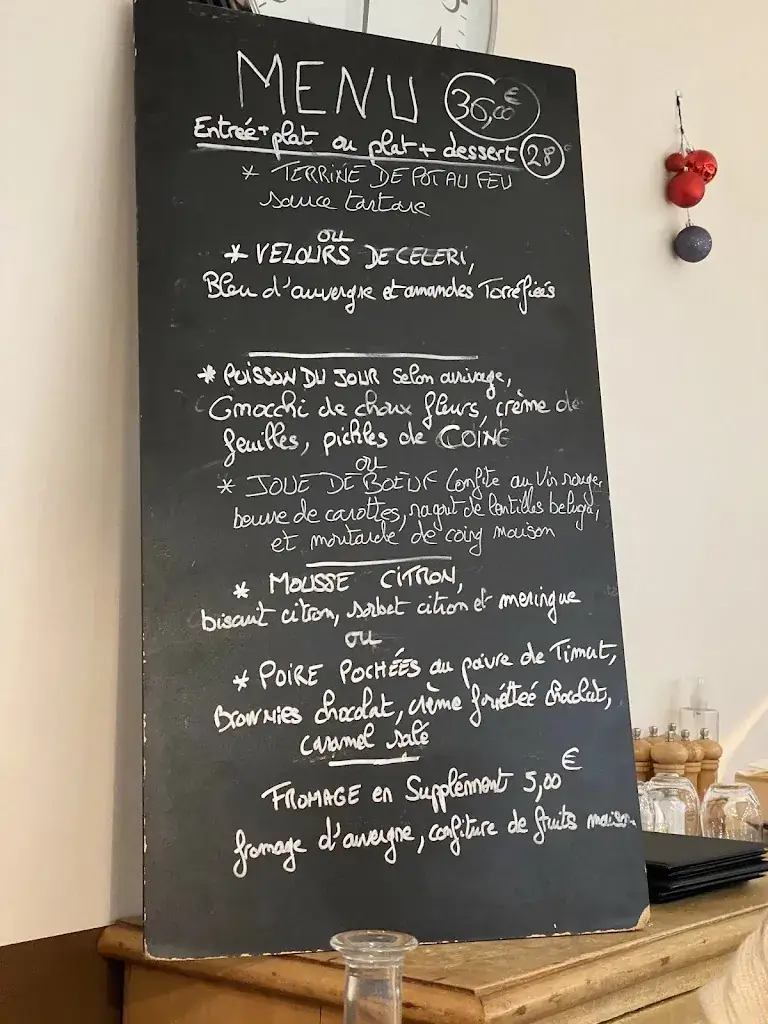 MENU 36,00€
Entrée + plat ou plat + dessert 28€
* TERRINE DE POT AU FEU
sauce tartare
ou
* VELOURS DE CELERI,
Bleu d'auvergne et amandes Torréfiées
* POISSON DU JOUR Selon arrivage,
Gnocchi de choux fleurs, crème de
feuilles, pickles de COING
ou
* JOUE DE BOEUF Confite au Vin rouge,
beurre de carottes, ragout de lentilles beluga,
et moutarde de coing maison
* MOUSSE CITRON,
biscuit citron, sorbet citron et meringue
ou
* POIRE POCHÉES au poivre de Timut,
BROWNIES chocolat, crème fouéttée chocolat,
caramel salé
FROMAGE en Supplément 5,00€
fromage d'auvergne, confiture de fruits maison